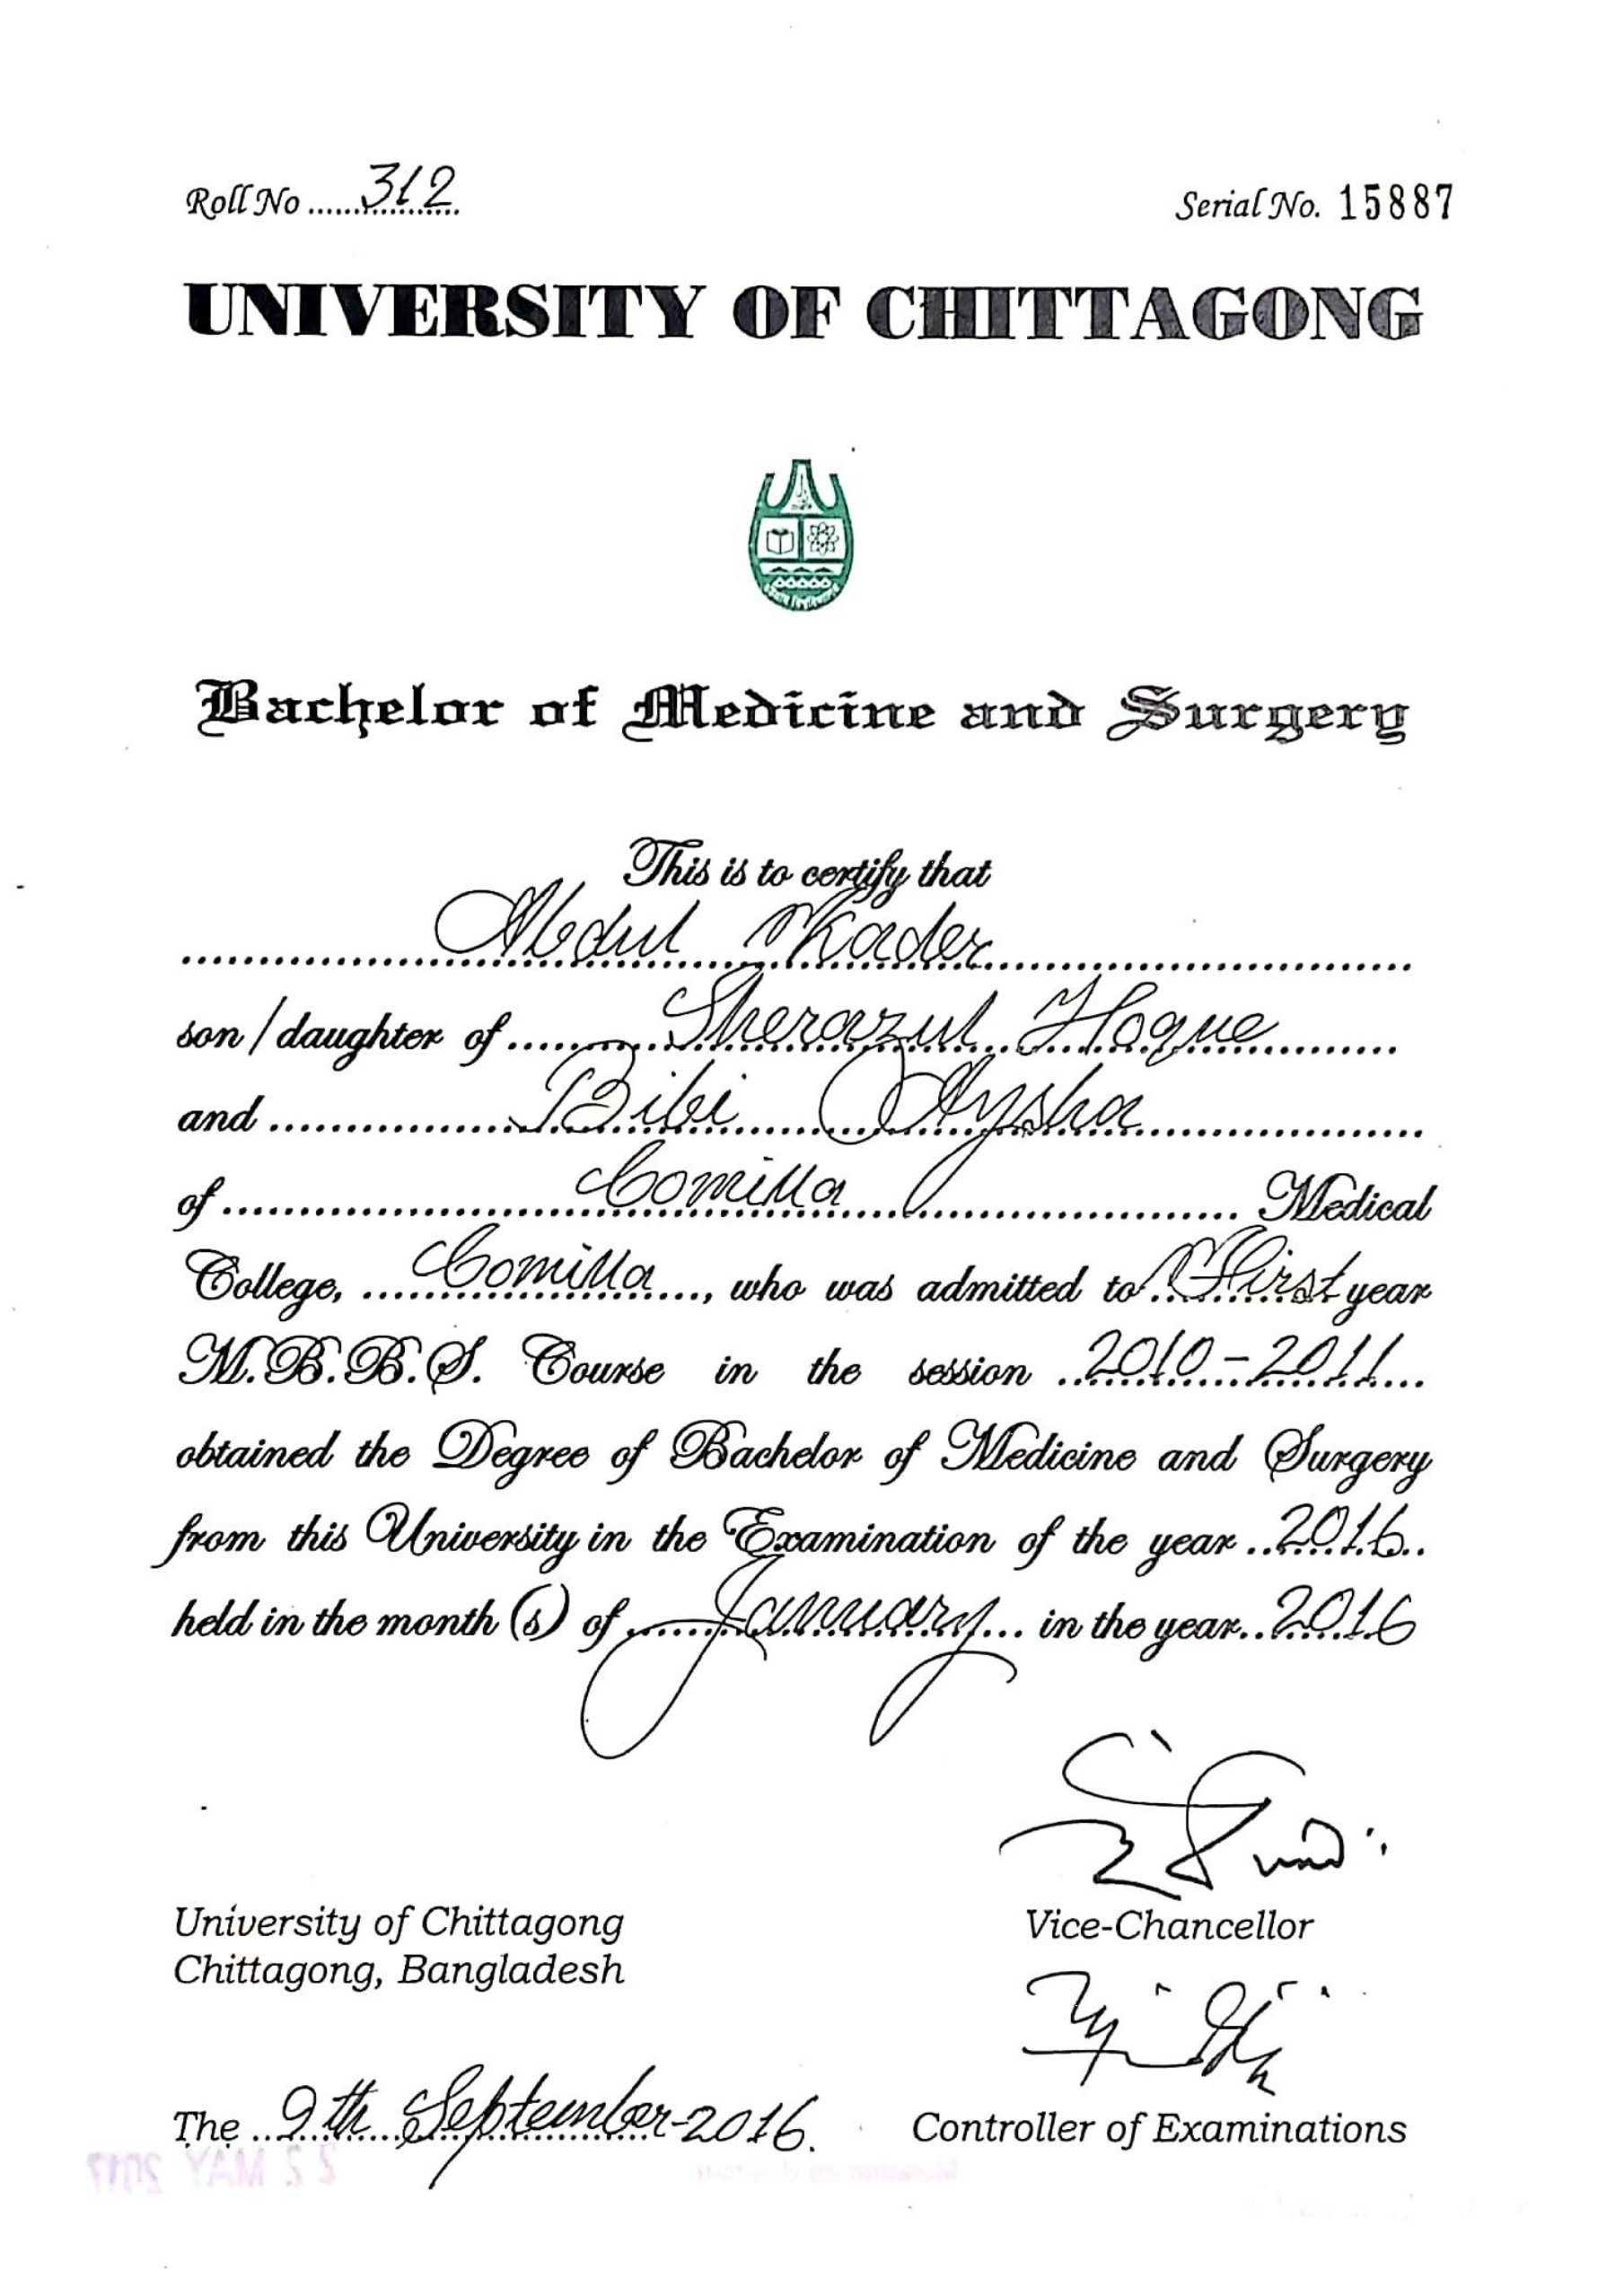 Roll No ......312......
Serial No. 15887
UNIVERSITY OF CHITTAGONG
Bachelor of Medicine and Surgery
This is to certify that
Abdul Kader
son/daughter of Sherazul Hoque
and Bibi Aysha
of Comilla Medical
College, Comilla, who was admitted to First year
M.B.B.S. Course in the session 2010-2011
obtained the Degree of Bachelor of Medicine and Surgery
from this University in the Examination of the year 2016
held in the month (s) of January in the year 2016
University of Chittagong
Chittagong, Bangladesh
Vice-Chancellor
The 9th September-2016.
Controller of Examinations
22 MAY 2017